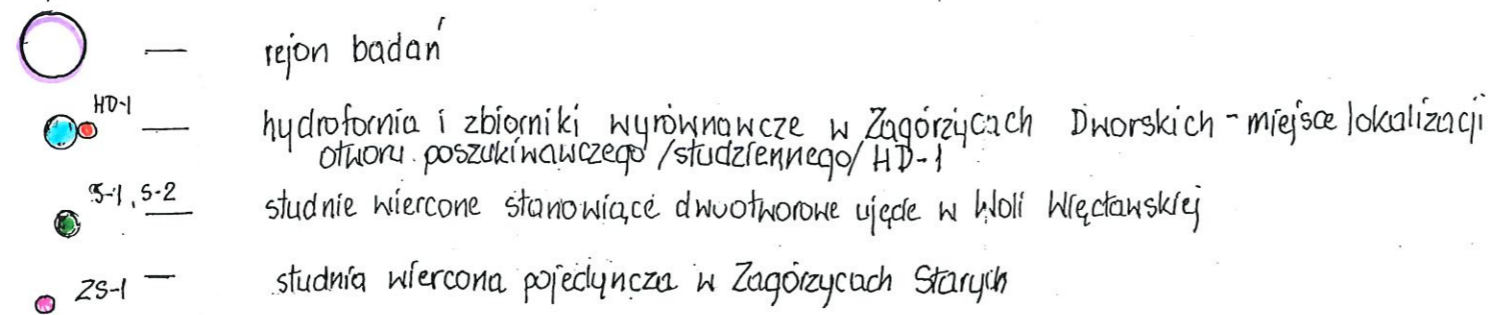 — rejon badań
HD-1 — hydrofornia i zbiorniki wyrównawcze w Zagórzycach Dworskich - miejsce lokalizacji
otworu poszukiwawczego /studziennego/ HD-1
S-1, S-2 — studnie wiercone stanowiące dwuotworowe ujęcie w Woli Więcławskiej
ZS-1 — studnia wiercona pojedyncza w Zagórzycach Starych